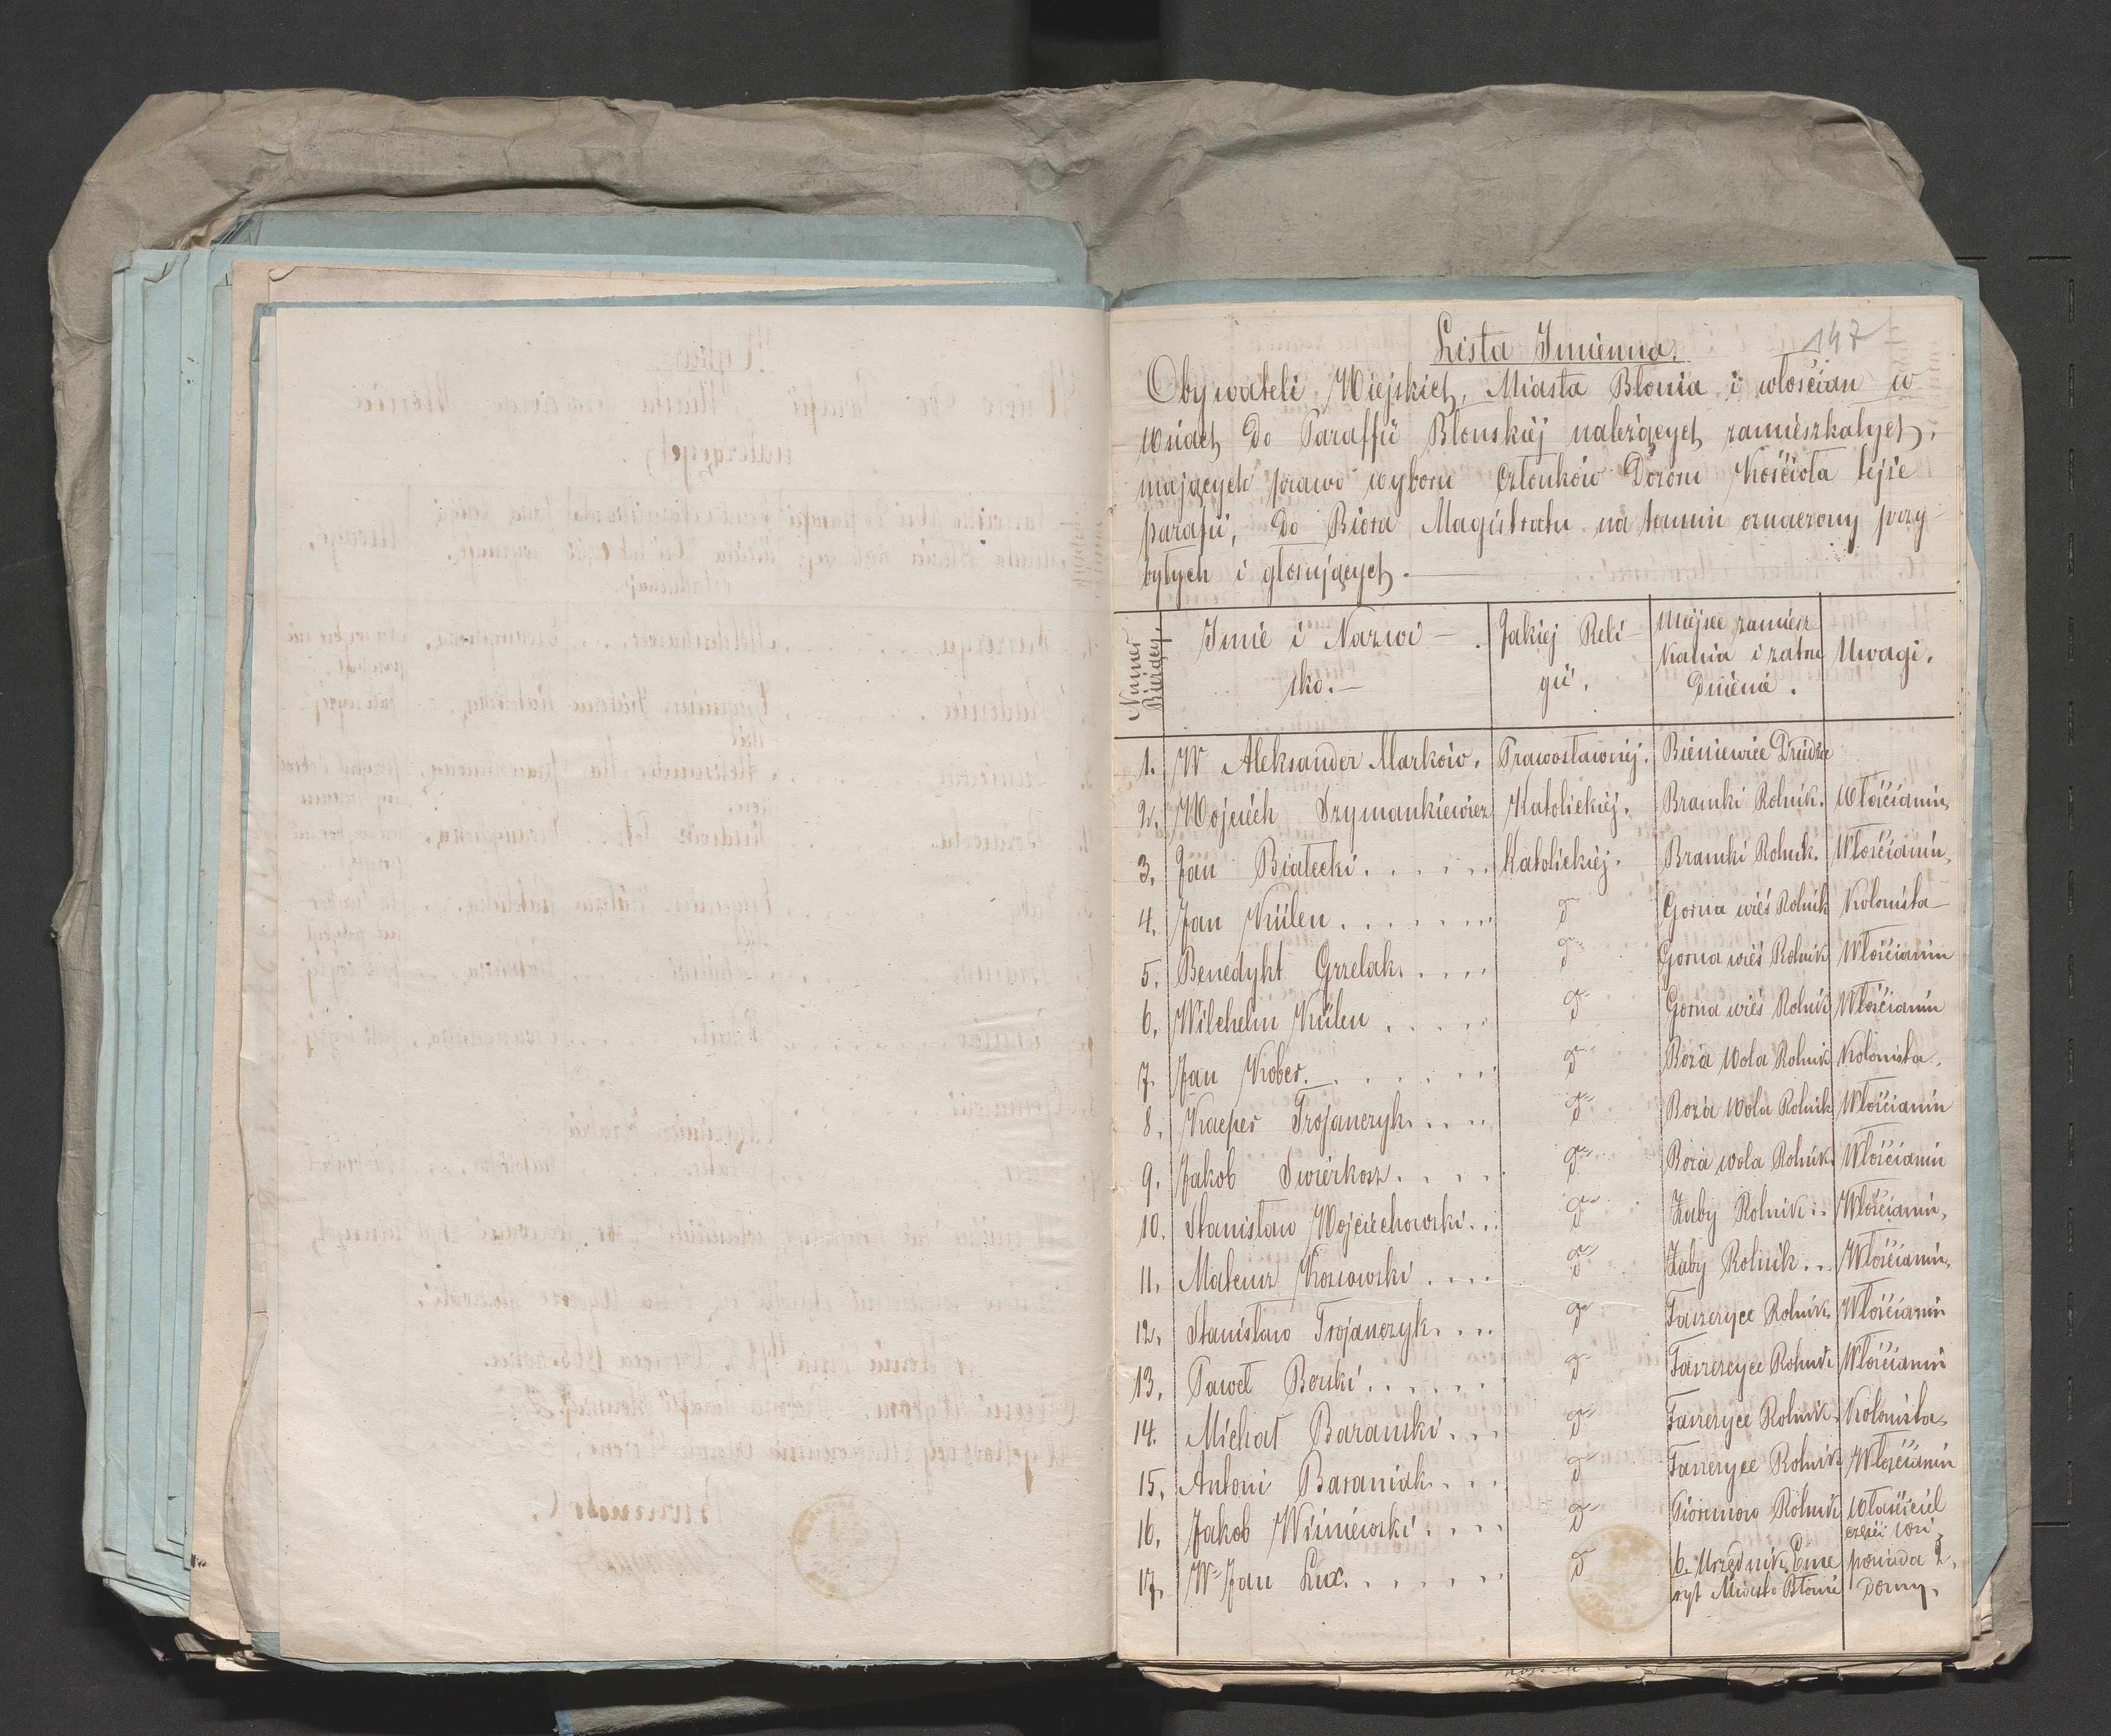 147
Lista Imienna.
Obywateli Miejskich, Miasta Błonia i włościan w
wsiach do Paraffii Błonskiej należących zamieszkałych,
mających prawo wyboru Członków Dozoru Kościoła tejże
parafii, do Biora Magistratu na termin oznaczony przy-
byłych i głosujących.
Numer Bieżący. Imie i Nazwi- Jakiej Reli- Miejsce zamiesz Uwagi.
sko.— gii. kania i zatru
dnienie.
1. W Aleksander Marków. Prawosławnej. Bieniewice Dziedzic
2. Wojciech Szymankiewicz Katolickiej. Bramki Rolnik. Włościanin,
3. Jan Białecki Katolickiej. Bramki Rolnik. Włościanin,
4. Jan Külen d Gorna wieś Rolnik Kolonista
5. Benedykt Grzelak d Gorna wieś Rolnik Włościanin
6. Wilchelm Külen d Gorna wieś Rolnik Włościanin
7. Jan Kober d Boża Wola Rolnik Kolonista.
8. Kacper Trojanczyk d Boża Wola Rolnik Włościanin
9. Jakob Swierkosz d Boża wola Rolnik Włościanin
10. Stanisław Wojciechowski d Żaby Rolnik Włościanin,
11. Mateusz Kossowski d Żaby Rolnik Włościanin,
12. Stanisław Trojanczyk d Faszczyce Rolnik Włościanin
13. Paweł Benki d Faszczyce Rolnik Włościanin
14. Michał Baranski d Faszczyce Rolnik Kolonista
15. Antoni Baraniak d Faszczyce Rolnik Włościanin
16. Jakob Wisniewski d Piorunow Rolnik Właściciel
części wsi
17. W Jan Lux d b. Urzędnik Eme posiada 2.
ryt Miasto Błonie domy.